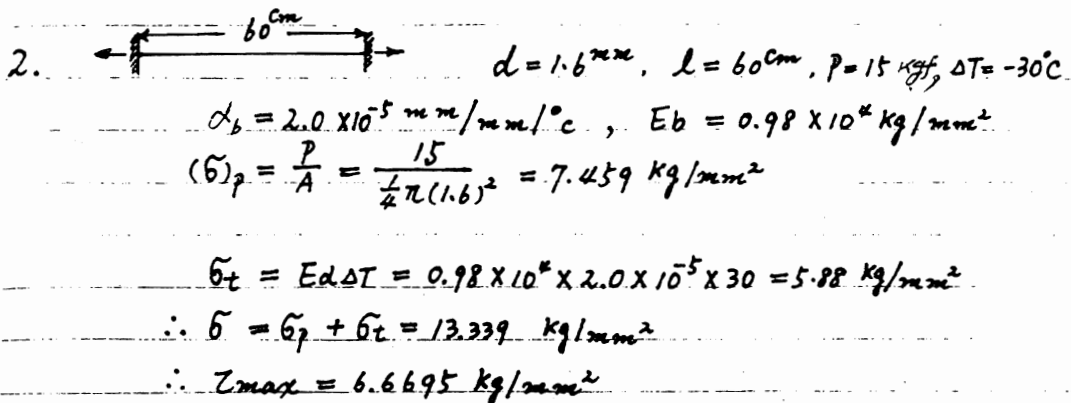 60cm
2. d = 1.6mm, l = 60cm, P = 15 kgf, ΔT = -30°C
α_b = 2.0 × 10⁻⁵ mm/mm/°c , Eb = 0.98 × 10⁴ kg/mm²
(σ)_p = P/A = 15/(¼π(1.6)²) = 7.459 kg/mm²
σ_t = EαΔT = 0.98 × 10⁴ × 2.0 × 10⁻⁵ × 30 = 5.88 kg/mm²
∴ σ = σ_p + σ_t = 13.339 kg/mm²
∴ τmax = 6.6695 kg/mm²